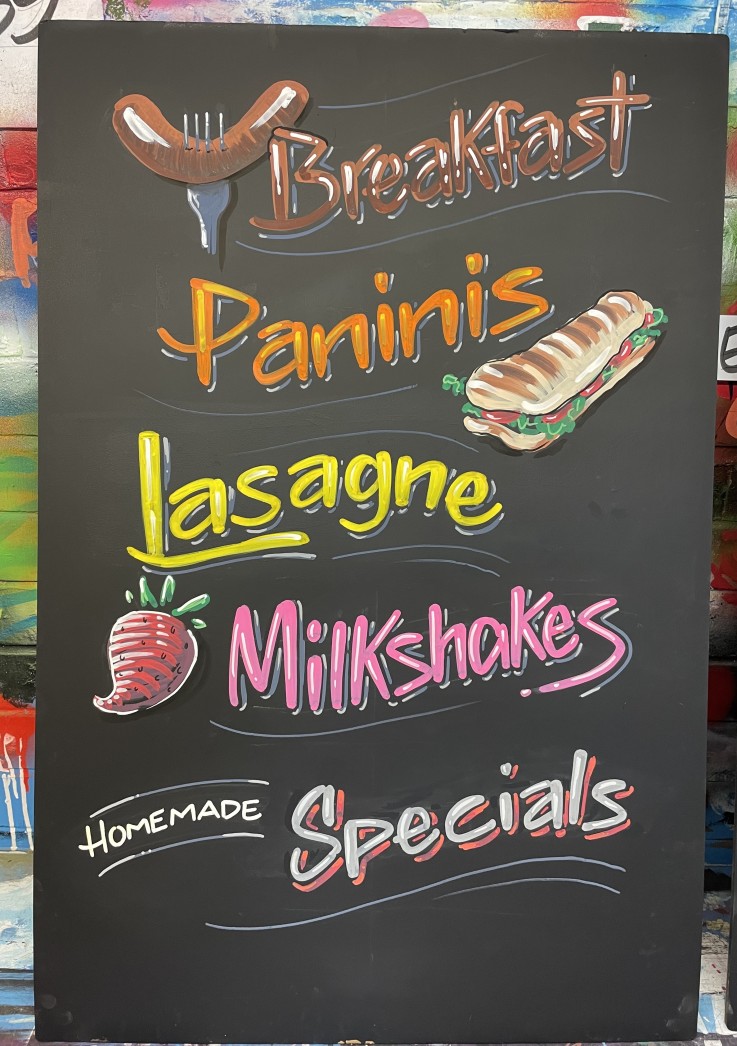 Breakfast
Paninis
Lasagne
Milkshakes
HOMEMADE Specials